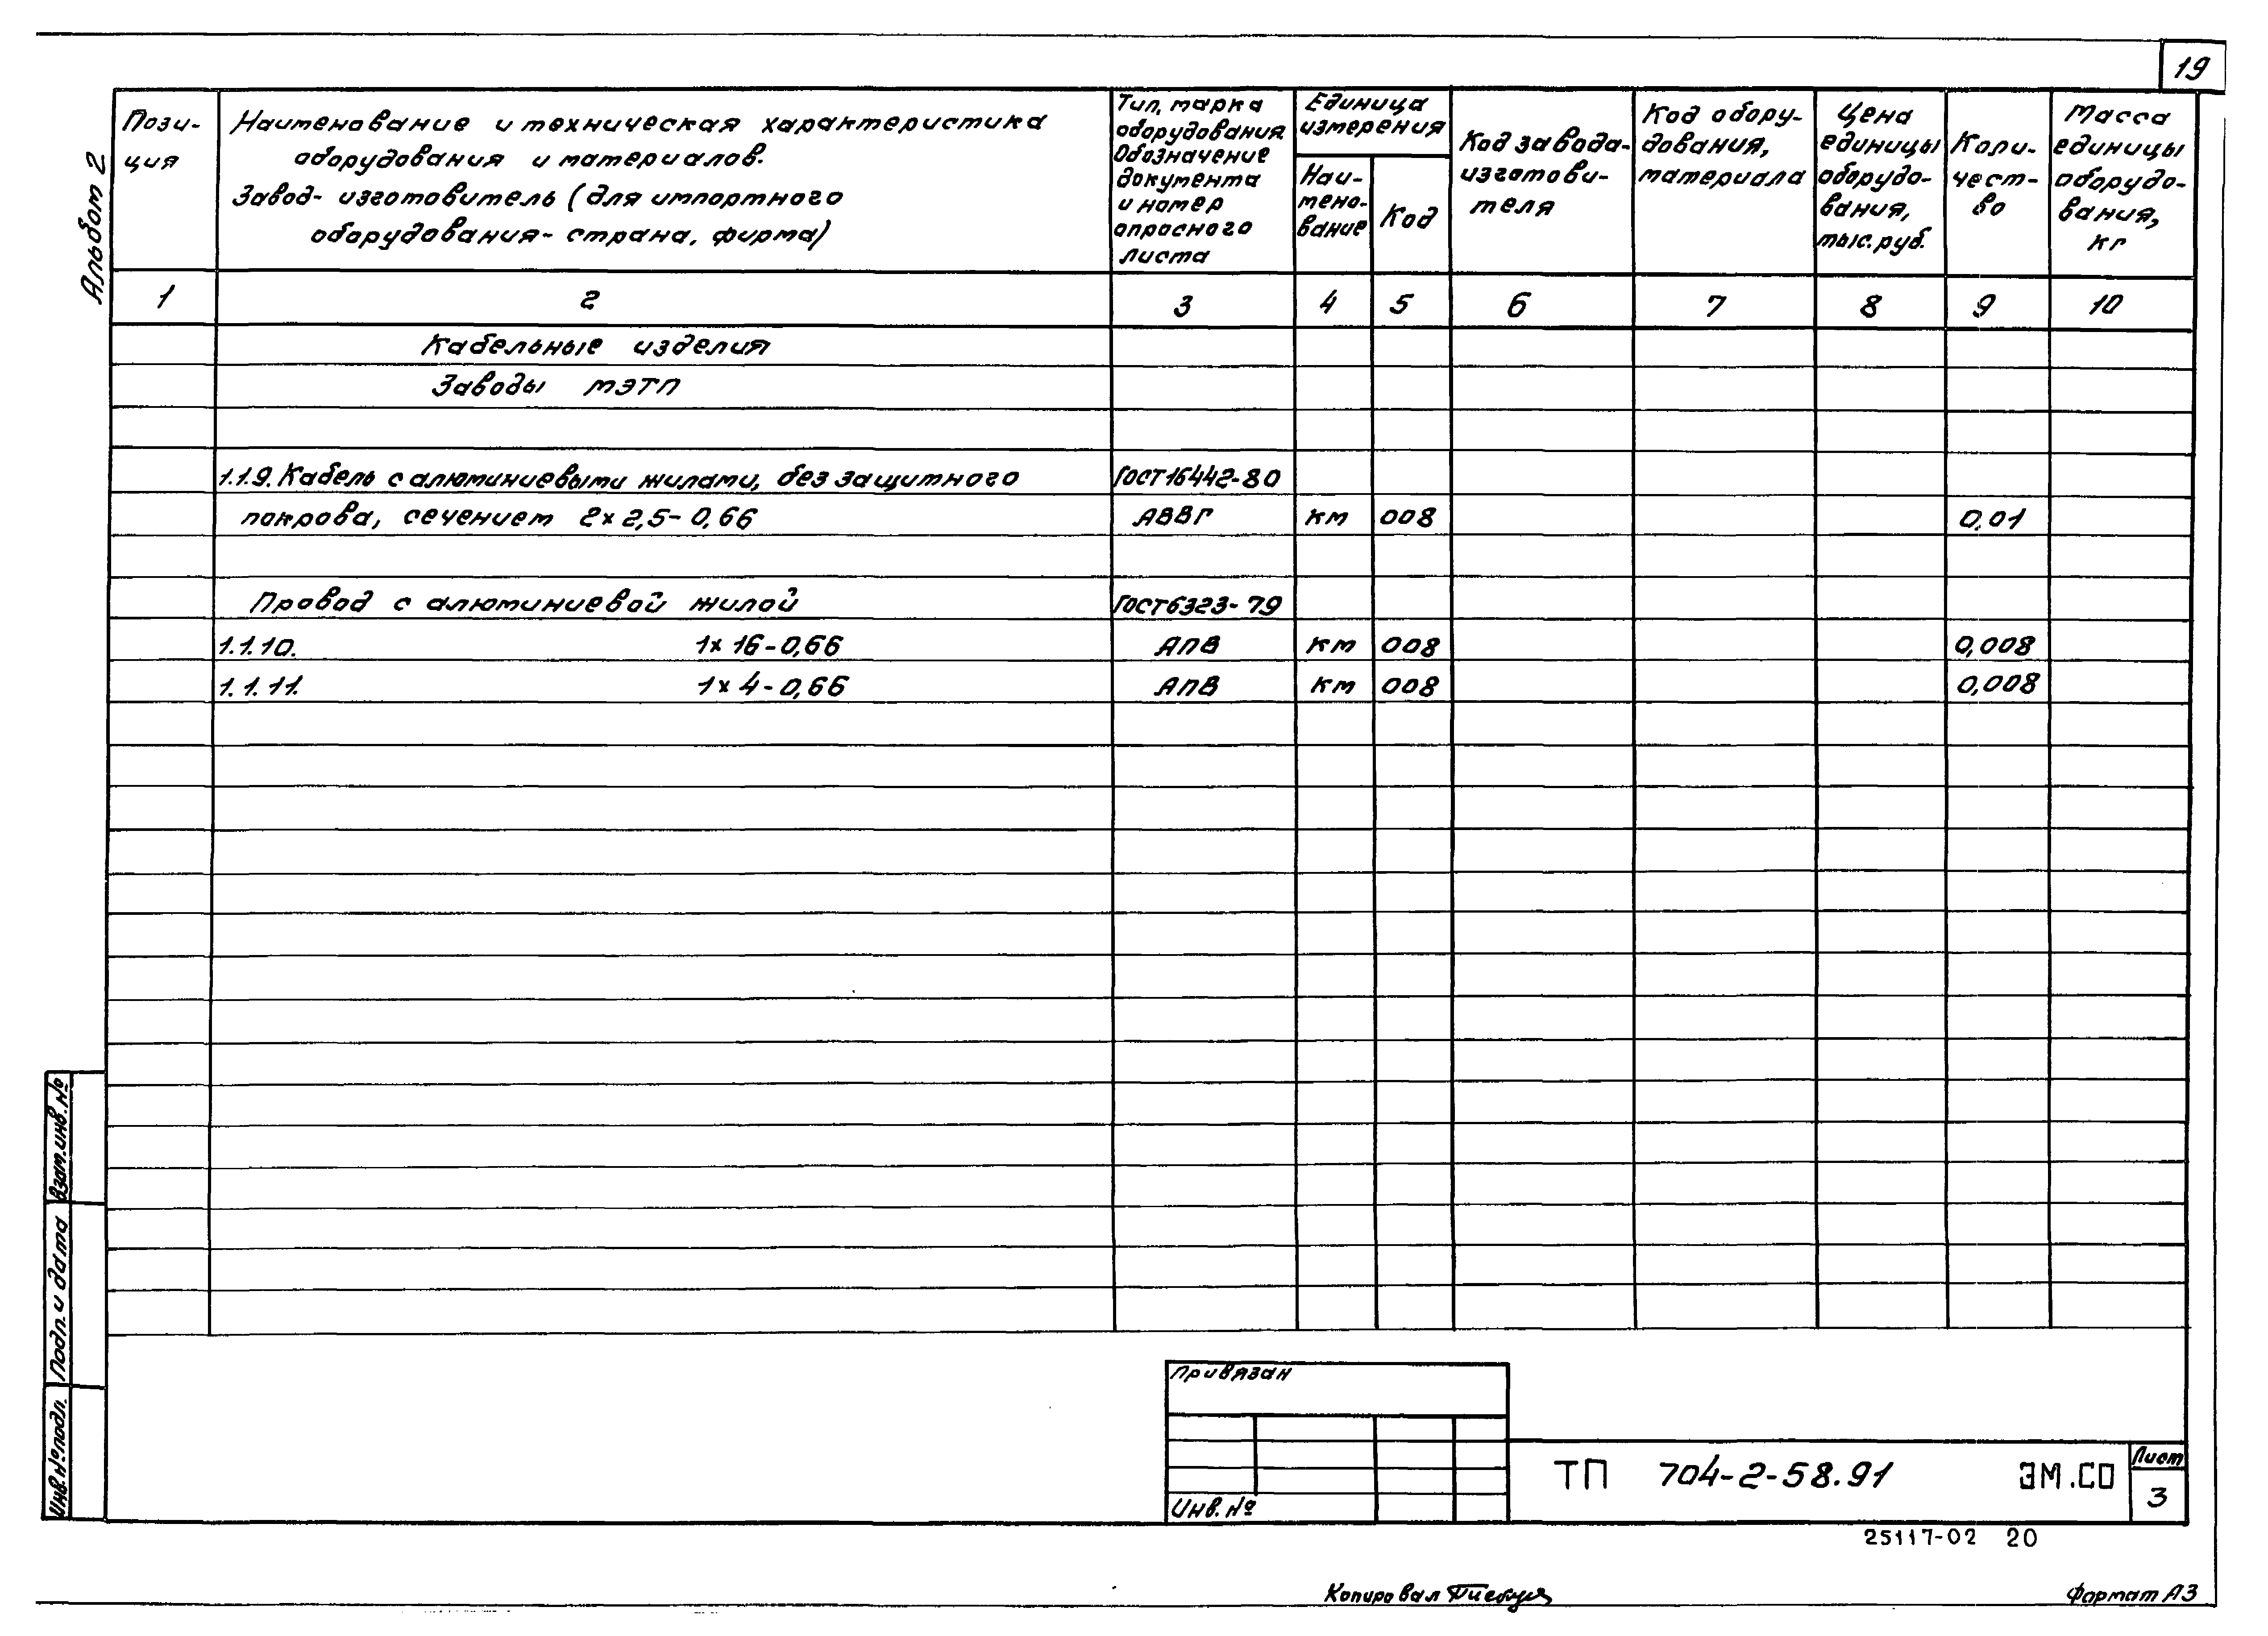 19
Альбом 2
Пози-
ция
Наименование и техническая характеристика
оборудования и материалов.
Завод-изготовитель (для импортного
оборудования - страна, фирма)
Тип, марка
оборудования
Обозначение
документа
и номер
опросного
листа
Единица
измерения
Наи-
мено-
вание
Код
Код завода-
изготови-
теля
Код обору-
дования,
материала
Цена
единицы
оборудо-
вания,
тыс. руб.
Коли-
чест-
во
Масса
единицы
оборудо-
вания,
кг
1 2 3 4 5 6 7 8 9 10
Кабельные изделия
Заводы МЭТП
1.1.9. Кабель с алюминиевыми жилами, без защитного ГОСТ 16442-80
покрова, сечением 2×2,5-0,66 АВВГ км 008 0,01
Провод с алюминиевой жилой ГОСТ 6323-79
1.1.10. 1×16-0,66 АПВ км 008 0,008
1.1.11. 1×4-0,66 АПВ км 008 0,008
Взам. инв. №
Подп. и дата
Инв. № подл.
Привязан
Инв. №
ТП 704-2-58.91 ЭМ.СО
Лист
3
25117-02 20
Копировал
Формат А3